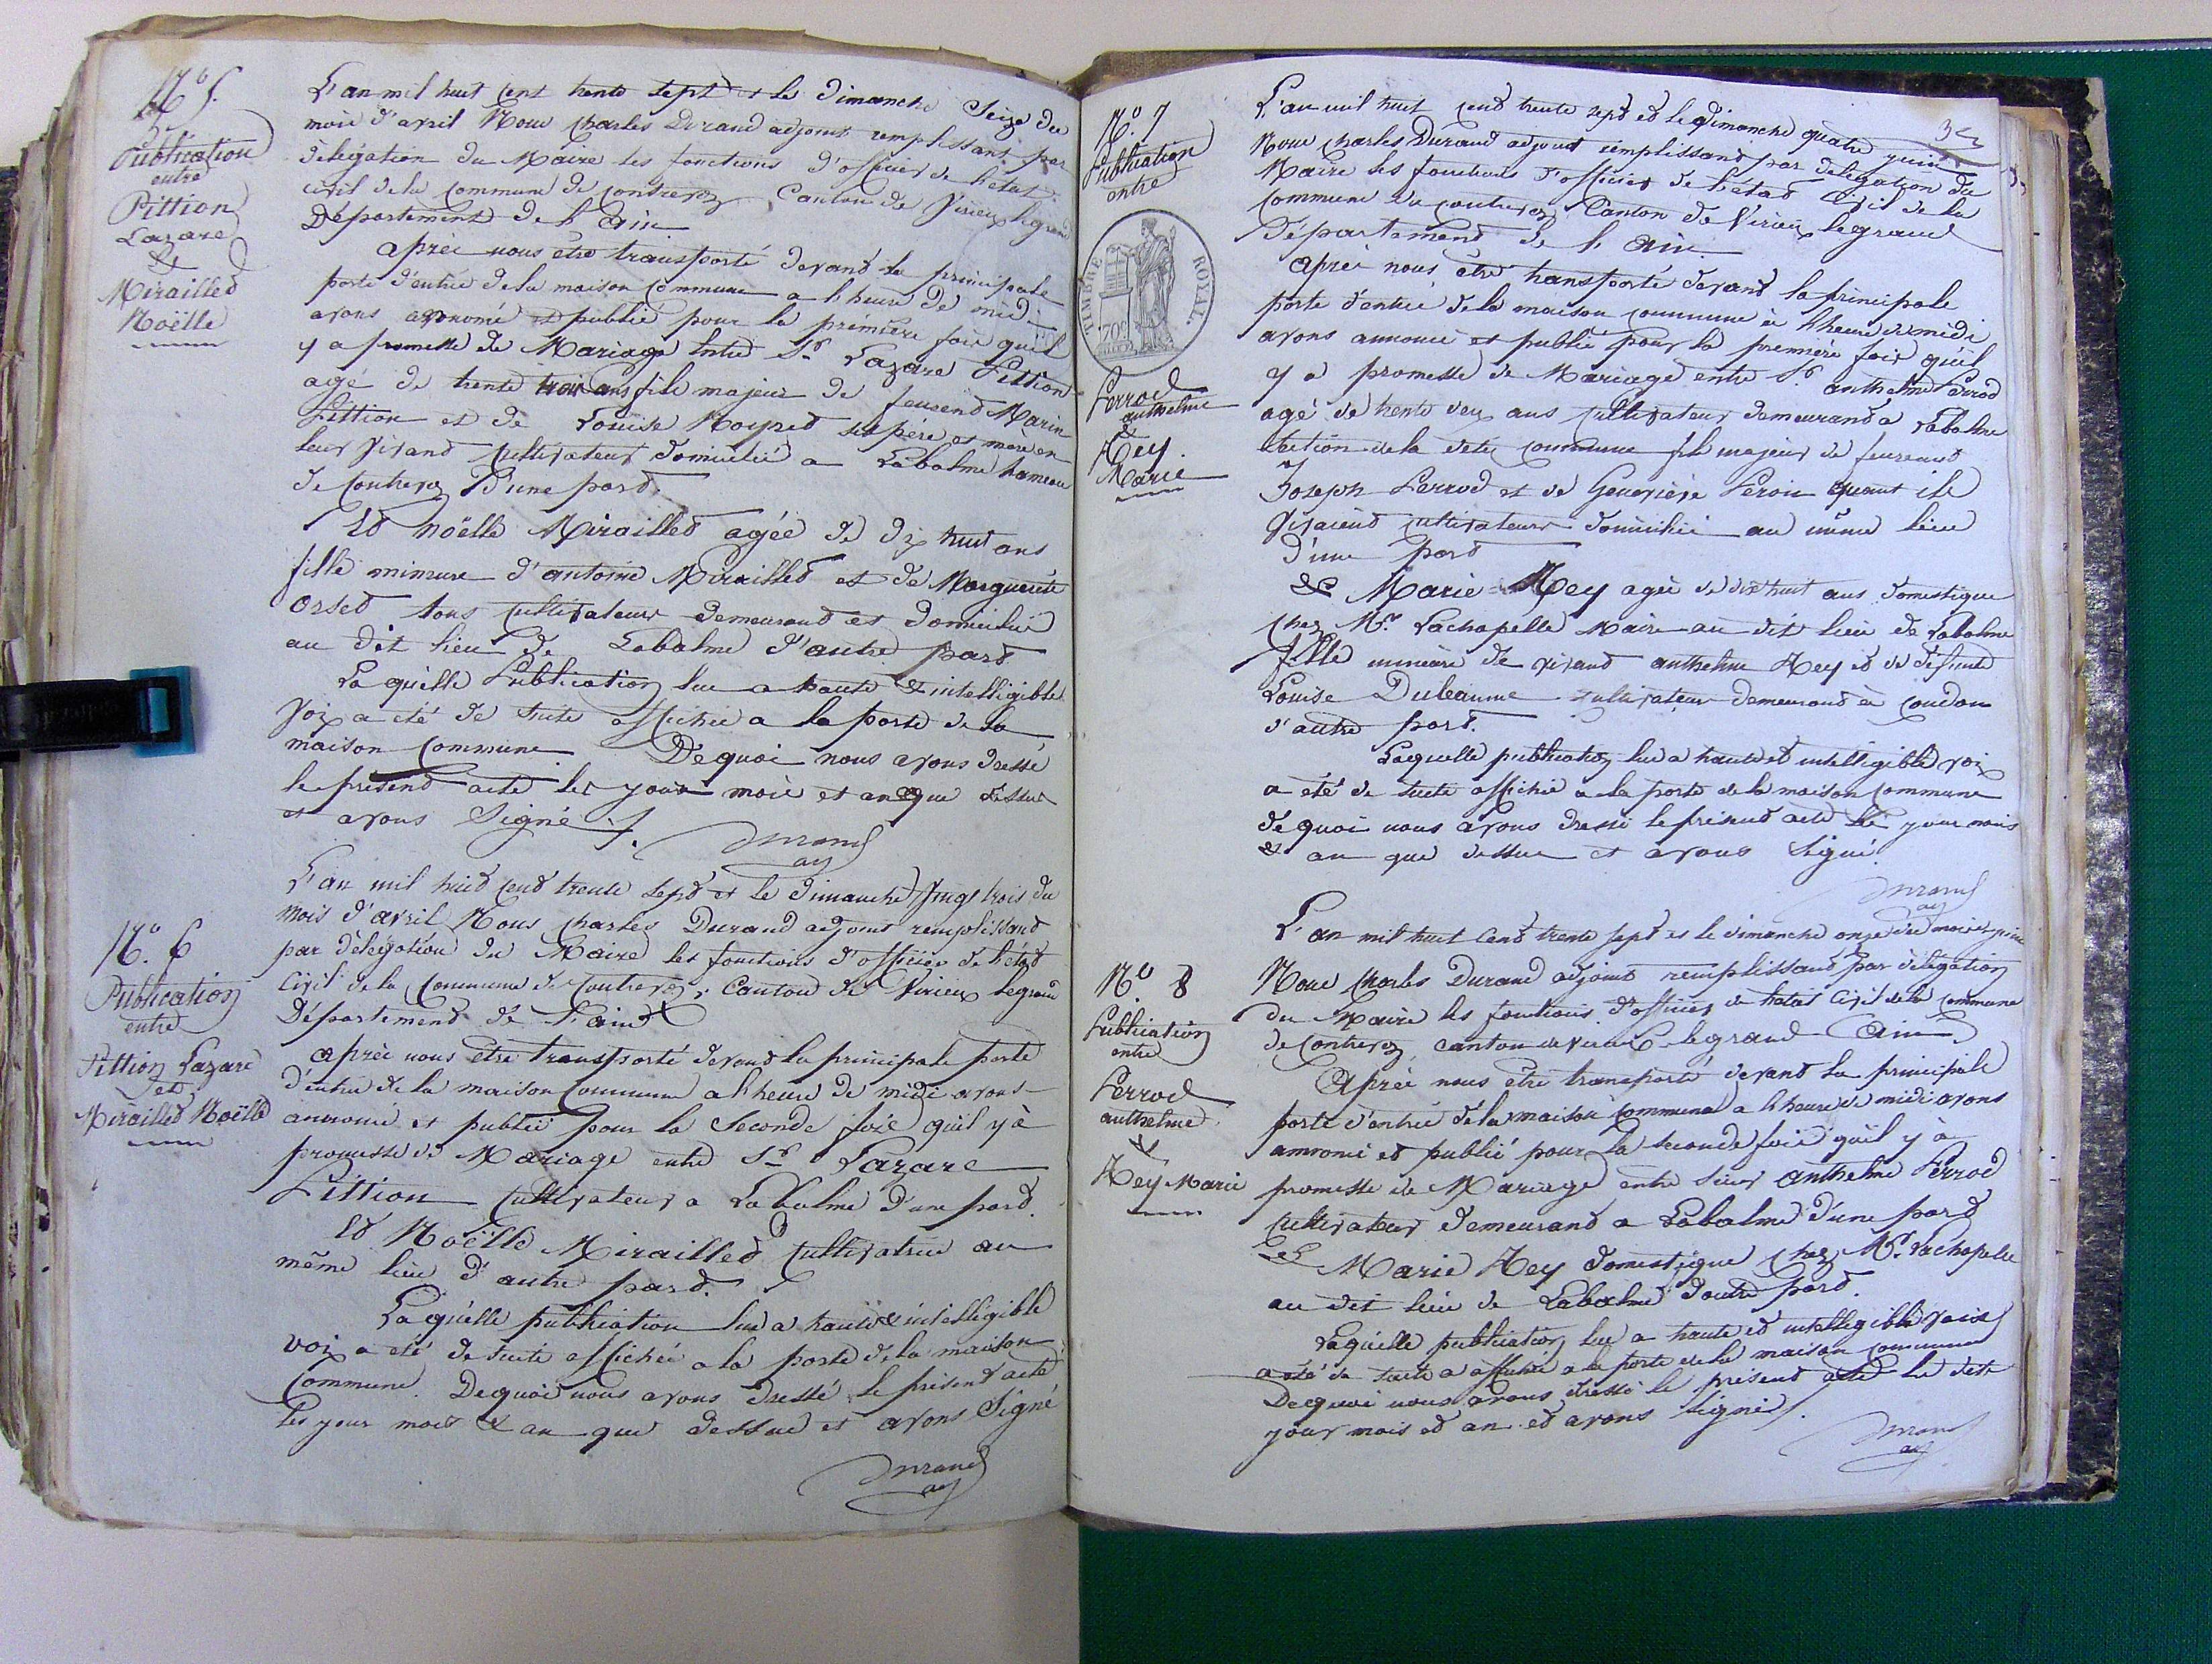 N.o 5.
Publication
entre
Pittion
Lazare
&
Mirailled
Noëlle
L'an mil huit cent trente sept et le dimanche Seize du
mois d'avril Nous Charles Durand adjoint remplissant par
délégation du Maire les fonctions d'officier de l'état
civil de la commune de Contrevoz, Canton de Virieux legrand
Département de l'Ain
après nous être transporté devand la principale
porte d'entrée de la maison Commune a lheure de midi
avons annoncé et publié pour la première fois quil
y a promesse de Mariage Entre Sr. Lazare Pittion
agé de trente trois ans fils majeur de feu Marin
Pittion et de Louise ses père et mère en
leur vivand cultivateur domicilié a Labalme hameau
de Contrevoz D'une pard.
Ed Noëlle Mirailled agée de dix huit ans
fille mineure d'antoine Mirailled et de Marguerite
Orsed tous cultivateurs demeurand et domicilié
au dit lieu de Labalme d'autre pard
Laquelle Publication lue a haute & intelligible
voix a été de suite affichée a la porte de la
maison Commune Dequoi nous avons dressé
le présend acte les jour mois et an que dessus
et avons Signé ./.
Durand
adj
N.o 6
Publication
entre
Pittion Lazare
et
Mirailled Noëlle
L'an mil huid cend trente sepd et le dimanche Vingt trois du
mois d'avril Nous Charles Durand adjoint remplissand
par délégation du Maire les fonctions d'officier de l'état
Civil de la Commune de Contrevoz, Canton de Virieux legrand
Département de l'ain
après nous être transporté devand la principale porte
d'entrée de la maison Commune a lheure de midi avons
annoncé et publié pour la Seconde fois quil y à
promesse de Mariage entre Sr. Lazare
Pittion Cultivateur a Labalme d'une pard.
Ed Noëlle Mirailled Cultivatrice au
même lieu d'autre pard.
Laquelle publication lue a haute & intelligible
voix a été de suite affichée a la porte de la maison
Commune. Dequoi nous avons dressé le présend acte
les jour mois & an que dessus et avons Signé
Durand
adj
32
N.o 7
Publication
entre
TIMBRE ROYAL.
70c
Perrod
anthelme
&
Rey
Marie
L'an mil huit cend trente sepd ed le dimanche quatre juin
Nous Charles Durand adjoint remplissand par délégation du
Maire les fonctions d'officier de l'étad Civil de la
Commune de Contrevoz Canton de Virieux legrand
Département de l'Ain.
Après nous être transporté devand la principale
porte d'entrée de la maison commune à lheure de midi
avons annoncé et publié pour la première fois quil
y a promesse de Mariage entre Sr. anthelme Perrod
agé de trente deux ans Cultivateur demeurand a Labalme
section de la dite commune fils majeur de
Joseph Perrod et de Geneviève quant ils
vivaiend cultivateurs domicilié au même lieu
d'une pard
& Marie Rey agée de dix huit ans domestique
chez Mr. Lachapelle Maire au dit lieu de Labalme
fille mineure de vivand anthelme Rey et de défunte
Louise cultivateur demeurand à Condon
d'autre pard.
Laquelle publication lue a haute et intelligible voix
a été de suite affichée a la porte de la maison Commune
de quoi nous avons dressé le présend acte les jour mois
& an que dessus et avons Signé.
Durand
adj
N.o 8
Publication
entre
Perrod
anthelme
&
Rey Marie
L'an mil huit cend trente sept et le dimanche onze du mois de juin
Nous Charles Durand adjoint remplissand par délégation
du Maire les fonctions d'officier de l'état Civil de la commune
de Contrevoz, canton de Virieux legrand (Ain)
Après nous être transporté devand la principale
porte d'entrée de la maison Commune a lheure de midi avons
annoncé et publié pour la seconde fois quil y à
promesse de Mariage entre sieur Anthelme Perrod
Cultivateur demeurand a Labalme d'une pard
Et Marie Rey domestique chez Mr. Lachapelle
au dit lieu de Labalme d'autre pard.
Laquelle publication lue a haute et intelligible voix
a été de suite affichée a la porte de la maison commune
Dequoi nous avons dressé le présend acte les dits
jour mois et an et avons Signé ./.
Durand
adj